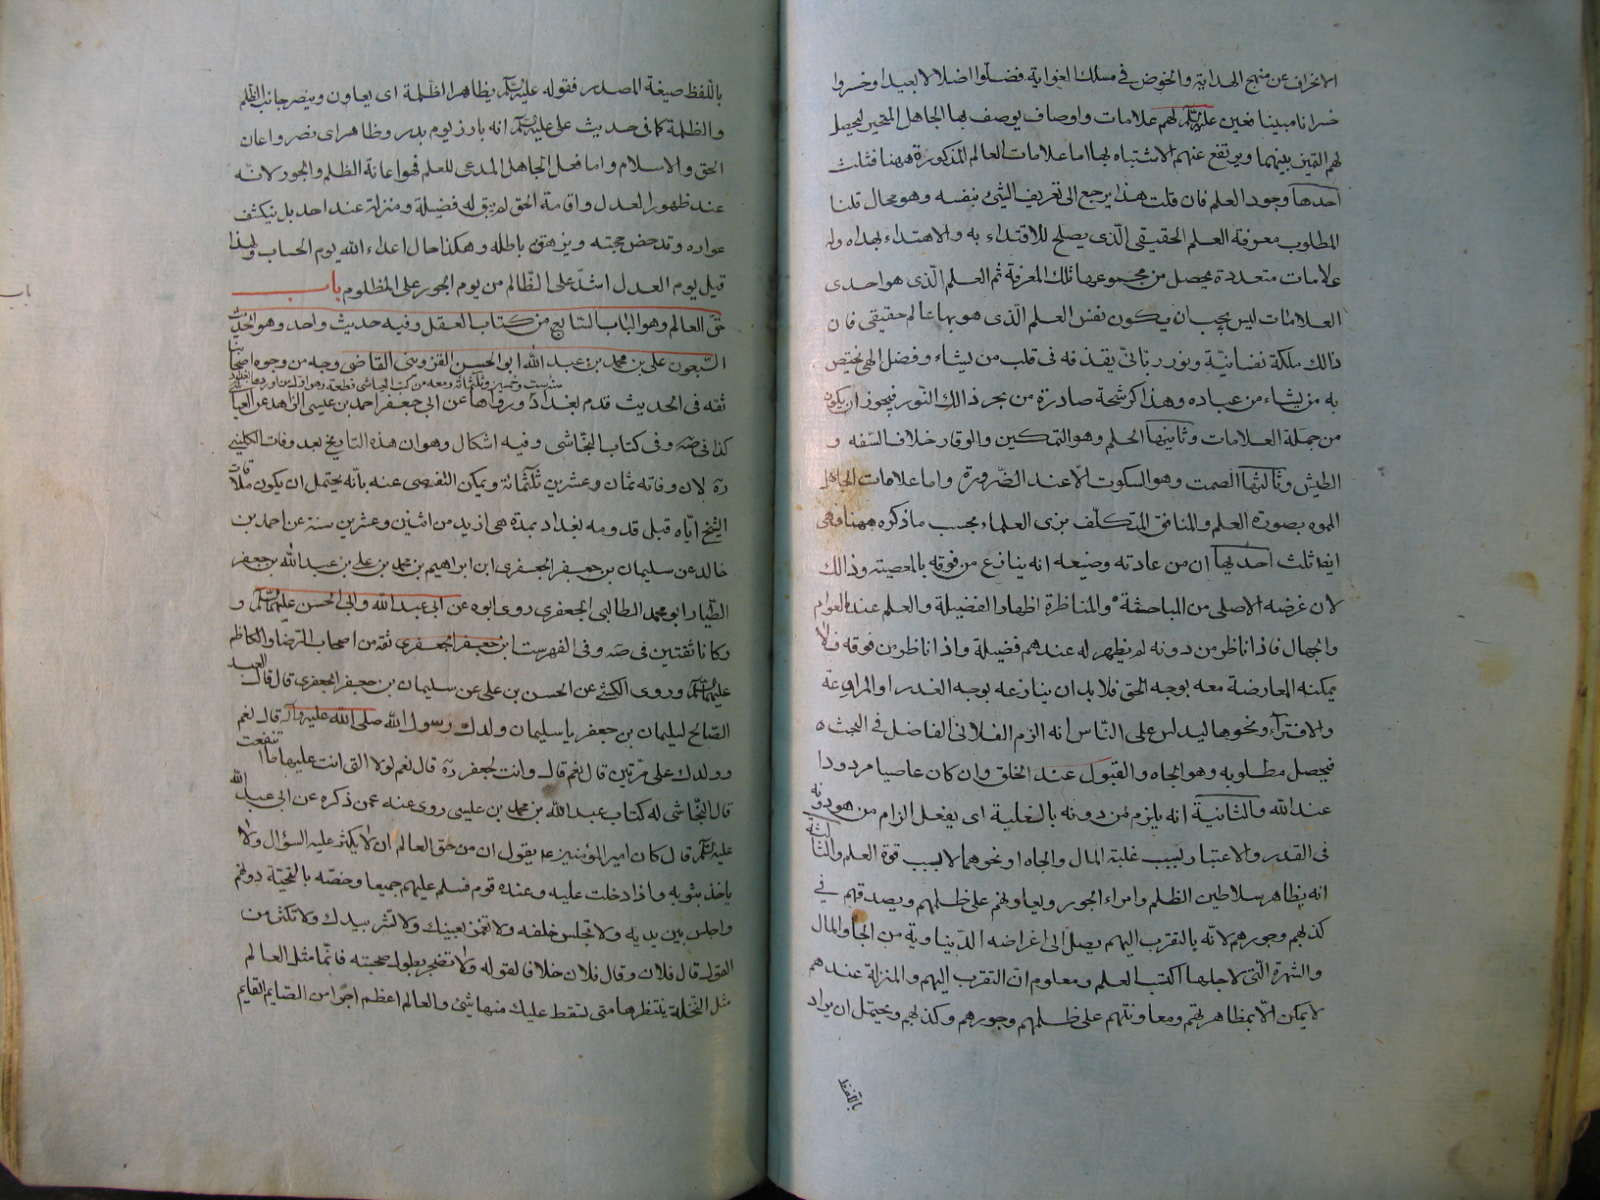 الانحراف عن منهج الهداية والخوض في مسلك الغواية فضلوا اضلالا بعيدا وخسروا
خسرانا مبينا فعين عليه السلم لهم علامات واوصاف يوصف بها الجاهل المتحير ليحصل
لهم التميز بينهما ويرتفع عنهم الاشتباه بها اما علامات العالم المذكورة ههنا فثلث
احدها وجود العلم فان قلت هذا يرجع الى تعريف الشئ بنفسه وهو محال قلنا
المطلوب معرفة العلم الحقيقي الذى يصلح للاقتداء به والاهتداء بهداه وله
علامات متعددة يحصل من مجموعها تلك المعرفة ثم العلم الذى هو احدى
العلامات ليس يجب ان يكون نفس العلم الذى هو بها عالم حقيقي فان
ذلك ملكة نفسانية ونور ربانى يقذفه فى قلب من يشاء وفضل الهى يختص
به من يشاء من عباده وهذا كرشحة صادرة من بحر ذلك النور فيجوز ان يكون
من جملة العلامات وثانيها الحلم وهو التمكين والوقار خلاف السفه و
الطيش وثالثها الصمت وهو السكوت الا عند الضرورة واما علامات الجاهل
المموه بصورة العلم والمنافق المتكلف بزى العلماء بحسب ما ذكره ههنا فهى
ايضا ثلث احديها ان من عادته وضيعه انه ينازع من فوقه بالمعصية وذلك
لان غرضه الاصلى من المباحثة والمناظرة اظهار الفضيلة والعلم عند العوام
والجهال فاذا ناظر من دونه لم يظهر له عندهم فضيلة واذا ناظر من فوقه فلا
يمكنه المعارضة معه بوجه الحق فلا بد ان ينازعه بوجه الغدر او المراوغة
والافتراء ونحوها ليدلس على الناس انه الزم الفلانى الفاضل فى البحث
فيحصل مطلوبه وهو الجاه والقبول عند الخلق وان كان عاصيا مردودا
عند الله والثانية انه يلزم من دونه بالغلبة اى يفعل الزام من هو دونه
فى القدر والاعتبار بسبب غلبة المال والجاه او نحوهما لا بسبب قوة العلم والثالثة
انه يظاهر سلاطين الظلم وامراء الجور ويعاونهم على ظلمهم ويصدقهم في
كذبهم وجورهم لانه بالتقرب اليهم يصل الى اغراضه الدنياوية من الجاه والمال
والشهرة التى لاجلها اكتسب العلم ومعلوم ان التقرب اليهم والمنزلة عندهم
لا يمكن الا بمظاهرتهم ومعاونتهم على ظلمهم وجورهم وكذبهم ويحتمل ان يراد
باللفظ
باللفظ صيغة المصدر فقوله عليه السلم يظاهر الظلمة اى يعاون وينصر جانب الظلم
والظلمة كما فى حديث على عليه السلم انه بارز يوم بدر وظاهر اى نصر واعان
الحق والاسلام واما فعل الجاهل المدعى للعلم فهو اعانة الظلم والجور لانه
عند ظهور العدل واقامة الحق لم يبق له فضيلة ومنزلة عند احد بل ينكشف
عواره وتدحض حجته ويزهق باطله وهكذا حال اعداء الله يوم الحساب ولهذا
قيل يوم العدل اشد على الظالم من يوم الجور على المظلوم باب
باب
حق العالم وهو الباب السابع من كتاب العقل وفيه حديث واحد وهو الحديث
التسعون على بن محمد بن عبد الله ابو الحسن القزوينى القاضى وجه من وجوه اصحابنا
ثقه فى الحديث قدم بغداد سنة ست وخمسين وثلثمائة ومعه من كتب العياشى قطعة وهو اول من اوردها بغداد ورواها عن ابي جعفر احمد بن عيسى الزاهد عن العياشى
كذا فى صه وفى كتاب النجاشى وفيه اشكال وهو ان هذه التاريخ بعد وفات الكلينى
ره لان وفاته ثمان وعشرين ثلثمائة ويمكن التفصى عنه بانه يحتمل ان يكون ملاقات
الشيخ اياه قبل قدومه بغداد بمدة هى ازيد من اثنين وعشرين سنة عن احمد بن
خالد عن سليمان بن جعفر الجعفرى ابن ابراهيم بن محمد بن على بن عبد الله بن جعفر
الطيار ابو محمد الطالبى الجعفرى روى ابوه عن ابى عبد الله وابى الحسن عليهما السلم و
وكانا ثقتين فى صه وفى الفهرست ابن جعفر الجعفرى ثقه من اصحاب الرضا والكاظم
عليهما السلم وروى الكشى عن الحسن بن على عن سليمان بن جعفر الجعفرى قال قال العبد
الصالح لسليمان بن جعفر يا سليمان ولدك رسول الله صلى الله عليه واله قال نعم
وولدك على مرتين قال نعم قال وانت لجعفر ره قال نعم لولا التى انت عليها ما انتفعت
قال النجاشى له كتاب عبد الله بن محمد بن عليسى روى عنه عمن ذكره عن ابى عبد الله
عليه السلم قال كان امير المؤمنين ع يقول ان من حق العالم ان لا يكثر عليه السؤال ولا
ياخذ بثوبه واذا دخلت عليه وعنده قوم فسلم عليهم جميعا وخصه بالتحية دونهم
واجلس بين يديه ولا تجلس خلفه ولا تغمز بعينك ولا تشر بيدك ولا تكثر من
القول قال فلان وقال فلان خلافا لقوله ولا تضجر بطول صحبته فانما مثل العالم
مثل النخلة ينتظرها متى تسقط عليك منها شئ والعالم اعظم اجرا من الصايم القايم